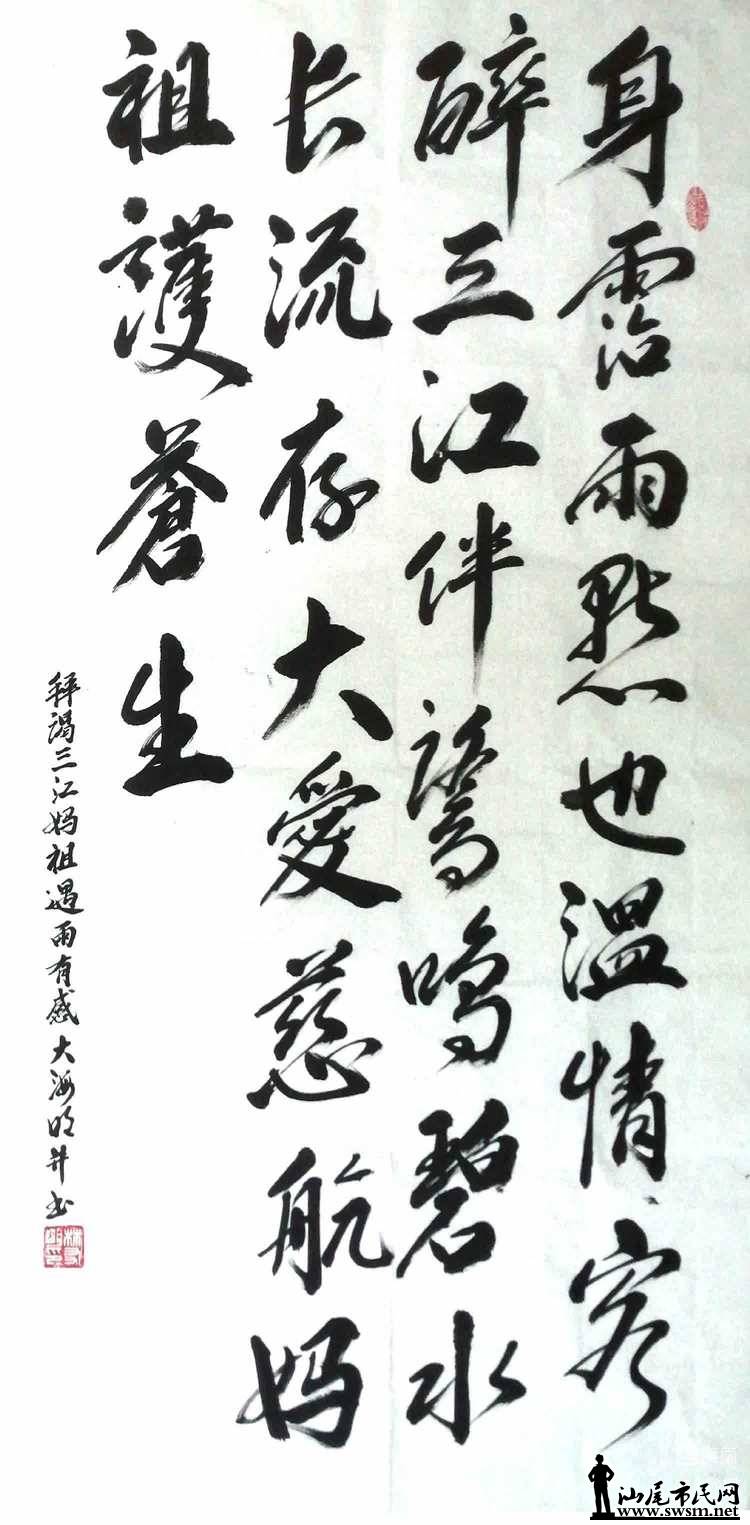 身霑雨點也温情客
醉三江伴鷺鳴碧水
长流存大愛慈航妈
祖護蒼生
拜謁三江妈祖遇雨有感大海明井书
汕尾市民网
www.swsm.net